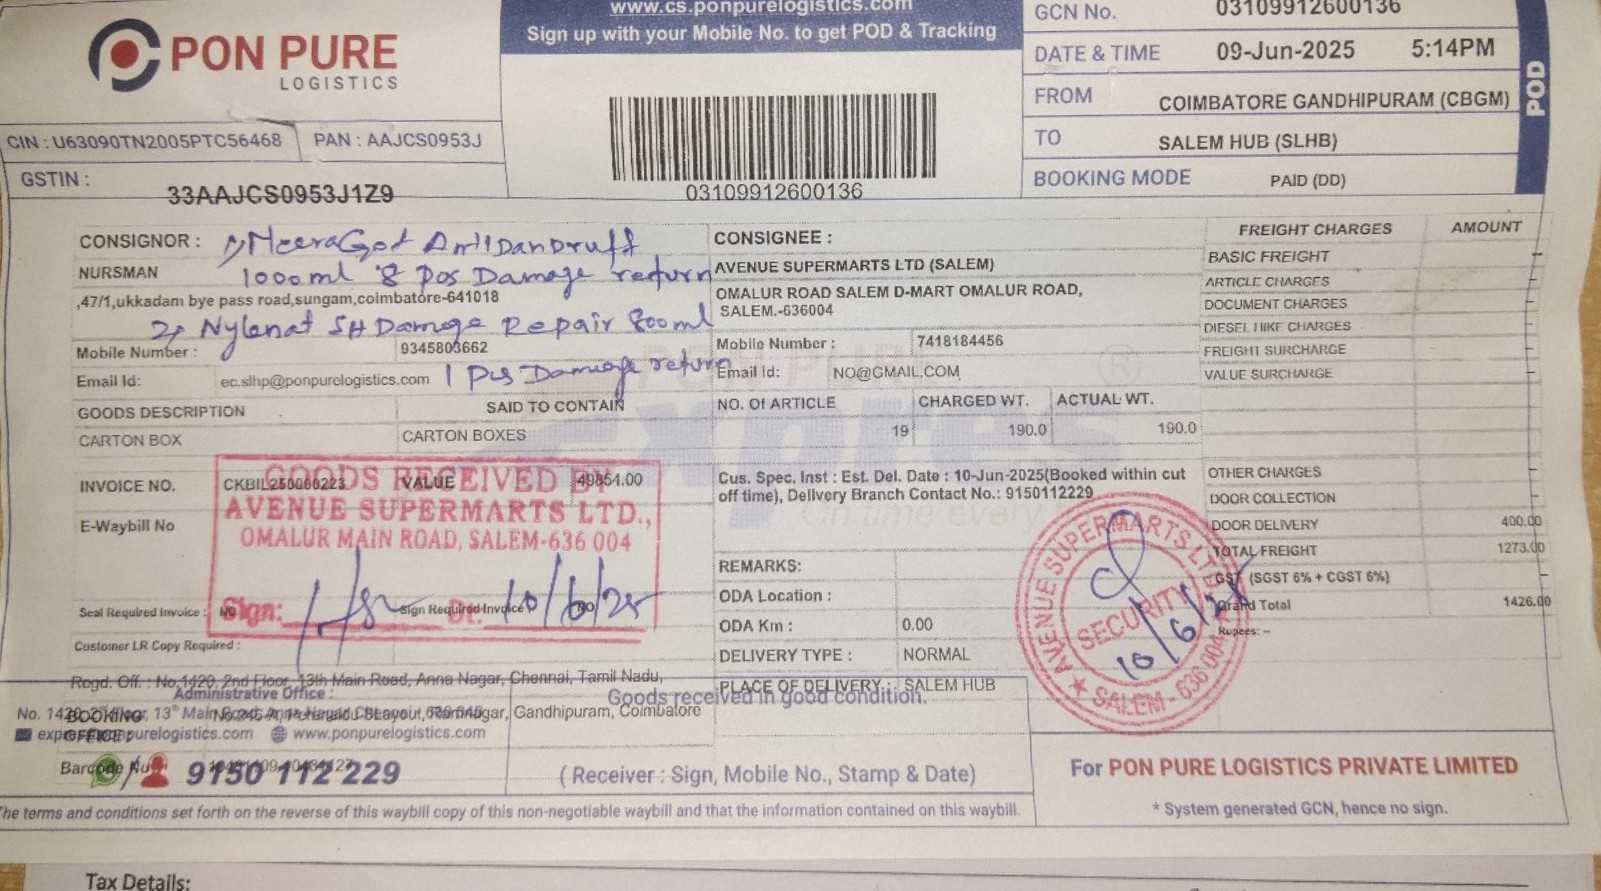 PON PURE
LOGISTICS
CIN : U63090TN2005PTC56468 PAN : AAJCS0953J
GSTIN :
33AAJCS0953J1Z9
www.cs.ponpurelogistics.com
Sign up with your Mobile No. to get POD & Tracking
03109912600136
GCN No. 03109912600136
DATE & TIME 09-Jun-2025 5:14PM
FROM COIMBATORE GANDHIPURAM (CBGM)
TO SALEM HUB (SLHB)
BOOKING MODE PAID (DD)
POD
CONSIGNOR : 1) MeeraGot AntiDandruff
NURSMAN 1000ml 8 pcs Damage return
,47/1,ukkadam bye pass road,sungam,coimbatore-641018
2) Nylenat SH Damage Repair 800ml
Mobile Number : 9345803662
Email Id: ec.slhp@ponpurelogistics.com 1 pcs Damage return
GOODS DESCRIPTION SAID TO CONTAIN
CARTON BOX CARTON BOXES
INVOICE NO. CKBIL250000223 VALUE 49854.00
E-Waybill No
GOODS RECEIVED BY
AVENUE SUPERMARTS LTD.,
OMALUR MAIN ROAD, SALEM-636 004
Sign: Dt: 10/6/25
Seal Required Invoice : NO Sign Required Invoice NO
Customer LR Copy Required :
CONSIGNEE :
AVENUE SUPERMARTS LTD (SALEM)
OMALUR ROAD SALEM D-MART OMALUR ROAD,
SALEM.-636004
Mobile Number : 7418184456
Email Id: NO@GMAIL.COM
NO. Of ARTICLE CHARGED WT. ACTUAL WT.
19 190.0 190.0
Cus. Spec. Inst : Est. Del. Date : 10-Jun-2025(Booked within cut
off time), Delivery Branch Contact No.: 9150112229
On time every
REMARKS:
ODA Location :
ODA Km : 0.00
DELIVERY TYPE : NORMAL
PLACE OF DELIVERY : SALEM HUB
Goods received in good condition.
FREIGHT CHARGES AMOUNT
BASIC FREIGHT -
ARTICLE CHARGES -
DOCUMENT CHARGES -
DIESEL HIKE CHARGES -
FREIGHT SURCHARGE -
VALUE SURCHARGE -
OTHER CHARGES -
DOOR COLLECTION -
DOOR DELIVERY 400.00
TOTAL FREIGHT 1273.00
GST (SGST 6% + CGST 6%) -
Grand Total 1426.00
Rupees: –
AVENUE SUPERMARTS LTD
SECURITY
10/6/25
SALEM - 636 004
Regd. Off. : No,1420, 2nd Floor, 13th Main Road, Anna Nagar, Chennai, Tamil Nadu,
Administrative Office :
BOOKING
OFFICE :
Gandhipuram, Coimbatore
www.ponpurelogistics.com
9150 112 229
( Receiver : Sign, Mobile No., Stamp & Date)
For PON PURE LOGISTICS PRIVATE LIMITED
* System generated GCN, hence no sign.
The terms and conditions set forth on the reverse of this waybill copy of this non-negotiable waybill and that the information contained on this waybill.
Tax Details: